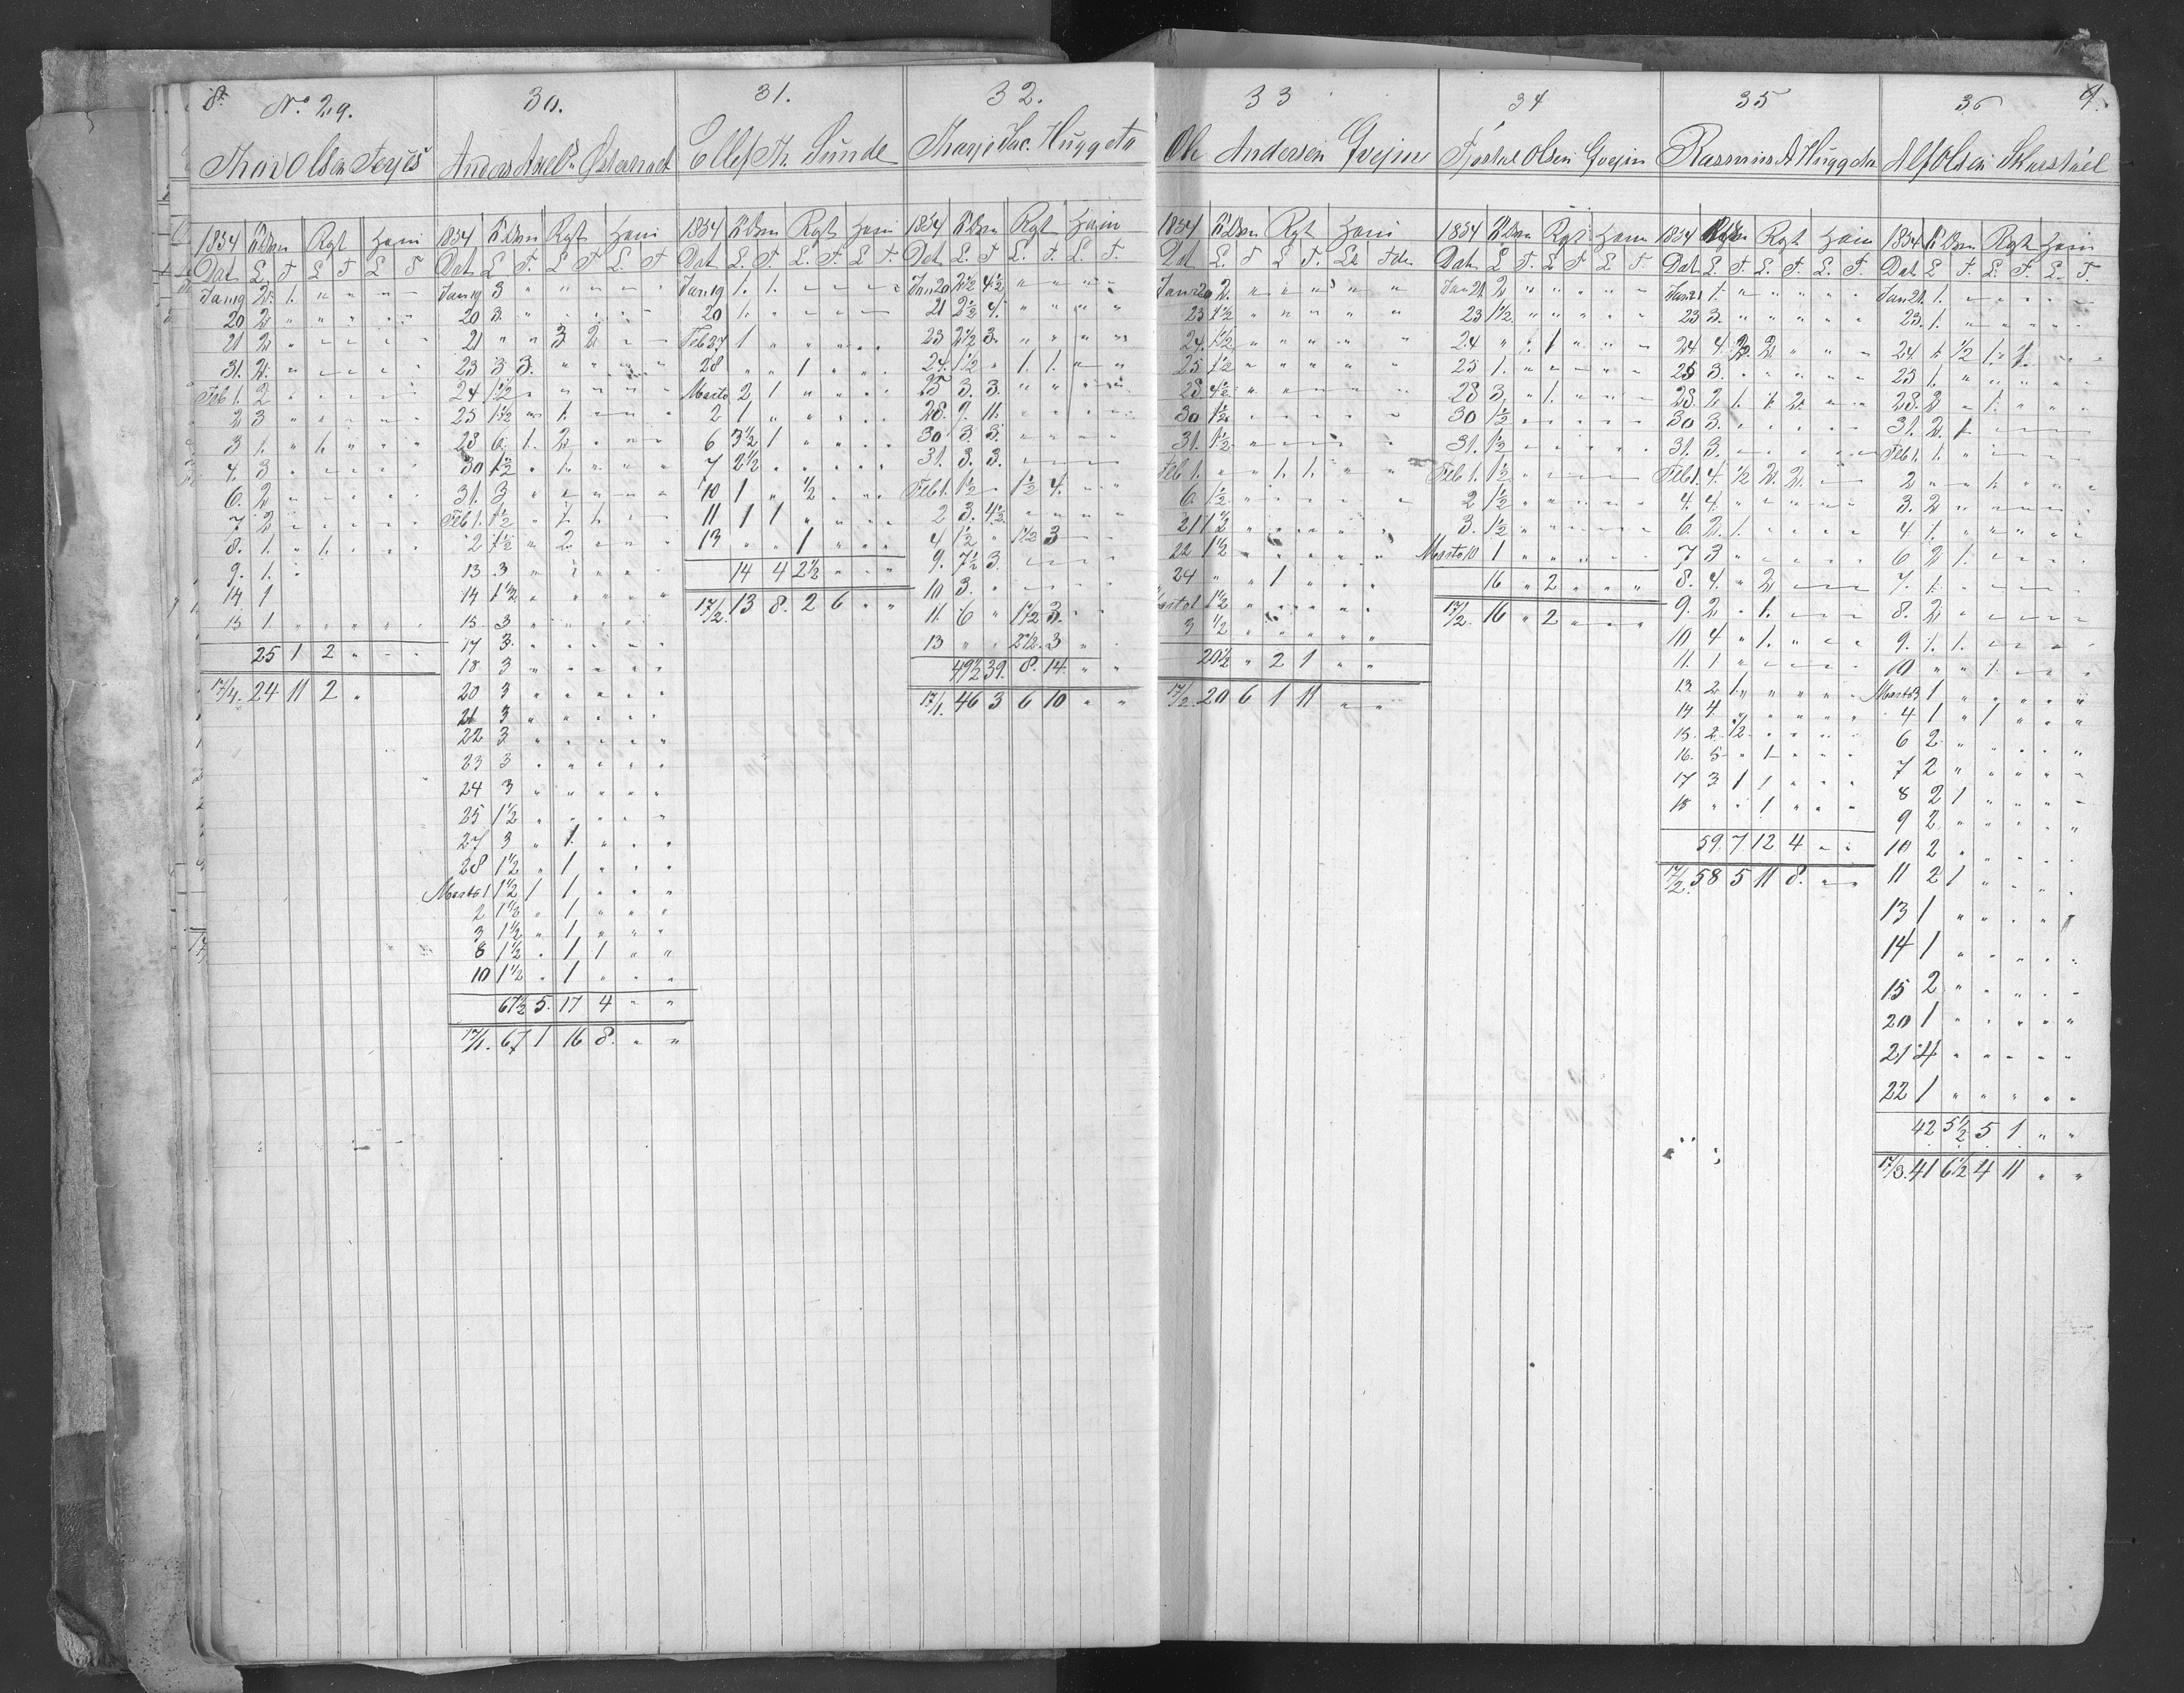 8. No 29.
Thov Olsen Terjes
1854 Rgt
Dat L. T L T. L T
Jan 19 2. 1. " " " "
20 2 " " " " "
21 2 " " " " "
31. 2. " " " " "
Feb 1. 2 " " " " "
2 3 " " " " "
3 1. " 1. " " "
4. 3 " " " " "
6. 2 " " " " "
7 2 " " " " "
8. 1. " 1. " " "
9. 1.
14 1
15 1. " " " " "
25 1 2 " " "
17/1. 24 11 2 "
30.
1854 Rgt
Dat L T. L T L. T
Jan 19 3 " " " " "
20 3. " " " " "
21 " " 3 2 " "
23 3 3. " " " "
24 1½ " " " " "
25 1½ " 1. " " "
28 6. 1. 2 " " "
30 1½ " 1. " " "
31. 3 " " " " "
Feb 1. 1½ " 1. 1. " "
2 1½ " 2 " " "
13 3 " " " " "
14 1½ " " " " "
15. 3 " " " " "
17 3. " " " " "
18 3 " " " " "
20 3 " " " " "
21 3 " " " " "
22 3 " " " " "
23 3 " " " " "
24 3 " " " " "
25 1½ " " " " "
27 3 " 1. " " "
28 1½ " 1 " " "
Marts 1 1½ 1 1 " " "
2 1½ " 1 " " "
3 1½ " 1 " " "
8 1½ " 1 1 " "
10 1½ " 1 " " "
67½ 5. 17 4 " "
17/1. 67 1 16 8. " "
31.
Ellef Th. Sunde
1854 Rgt
Dat L. T. L. T. L T.
Jan 19 1. 1. " " " "
20 1. " " " " "
Feb 27 1 " " " " "
28 " " 1 " " "
Marts 2 1 " " " "
2 1 " " " " "
6 3½ 1 " " " "
7 2½ " " " " "
10 1 " ½ " " "
11 1 1 " " " "
13 " " 1 " " "
14 4 2½ " " "
17/2. 13 8. 2 6 " "
32.
Tharje Jac. Huggeto
1854 Rgt
Dat L. T L. T. L. T.
Jan 20 2½ 4½ " " " "
21 2½ 4. " " " "
23 2½ 3. " " " "
24. 1½ " 1. 1. " "
25 3. 3. " " " "
28. 9. 11. " " " "
30 3. 3. " " " "
31. 3. 3. " " " "
Feb 1. 1½ " 1½ 4. " "
2 3. 4½ " " " "
4 1½ " 1½ 3 " "
9. 7½ 3. " " " "
10 3. " " " " "
11. 6 " 1½ 3. " "
13 " " 2½. 3 " "
49½ 39. 8. 14. " "
17/1. 46 3 6 10 " "
33
Ole Andersen Gvejin
1854 Rgt
Dat L. T L T.
Jan 20 2. " " " " "
23 1½ " " " " "
24. 1½ " " " " "
25 1½ " " " " "
28 4½ " " " " "
30 1½ " " " " "
31. 1½ " " " " "
Feb 1. " " 1. 1. " "
6. 1½ " " " " "
21 1½ " " " " "
22 1½ " " " " "
24 " " 1 " " "
Marts 1 1½ " " " " "
3 ½ " " " " "
20½ " 2 1 " "
17/2. 20 6 1 11 " "
34
Olsen Gvejin
1854 Rgt
Dat L T. L T L T.
Jan 21. 2 " " " " "
23 1½. " " " " "
24 " " 1 " " "
25 1. " " " " "
28 3. " 1. " " "
30 1½ " " " " "
31. 1½ " " " " "
Feb 1. 1½ " " " " "
2 1½ " " " " "
3. 1½ " " " " "
Marts 10 1 " " " " "
16 " 2 " " "
17/2. 16 " 2 " " "
35
Rasmus A Huggeto
1854 Rgt
Dat L. T. L. T. L. T.
Jan 21 1. " " " " "
23 3. " " " " "
24 4. ½ 2. " " "
25 3. " " " " "
28. 2 1. 1. 2. " "
30 3. " " " " "
31. 3. " " " " "
Feb 1. 4. ½ 2. 2. " "
4. 4. " " " " "
6. 2. 1. " " " "
7 3 " " " " "
8. 4. " 2 " " "
9. 2 " 1. " " "
10 4 " 1. " " "
11. 1 " " " " "
13. 2 1. " " " "
14 4. " " " " "
15. 2. ½ " " " "
16. 5 " 1 " " "
17 3 1 1 " " "
18 " " 1 " " "
59. 7 12 4 " "
17/2. 58 5 11 8. " "
36 9.
Alf Olsen Skarstuel
1854 Rgt
Dat L T. L. T. L. T
Jan 21. 1. " " " " "
23. 1. " " " " "
24. 1. ½ 1. 1. " "
25 1. " " " " "
28. 2 " 1. " " "
31. 2. 1 " " " "
Feb 1. 1. " " " " "
2 " " 1. " " "
3. 2 " " " " "
4 1. " " " " "
6 2 1. " " " "
7. 1. " " " " "
8. 2 " " " " "
9. 1. 1. " " " "
10 " " 1. " " "
Marts 3 1 " " " " "
4 1 " 1 " " "
6 2 " " " " "
7 2 " " " " "
8 2 1 " " " "
9 2 " " " " "
10 2 " " " " "
11 2 1 " " " "
13 1 " " " " "
14 1 " " " " "
15 2 " " " " "
20 1 " " " " "
21 4 " " " " "
22 1 " " " " "
42 5½ 5 1 " "
17/3. 41 6½ 4 11 " "